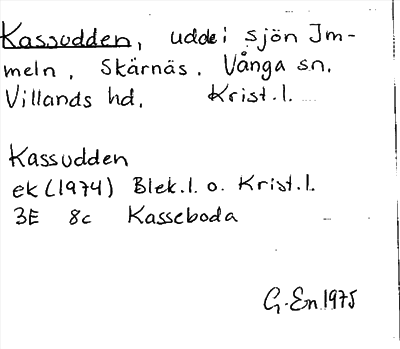 Kassudden, udde i sjön Im-
meln, Skärnäs. Vånga sn.
Villands hd. Krist.l.
Kassudden
ek (1974) Blek.l. o. Krist.l.
3E 8c Kasseboda
G. En 1975